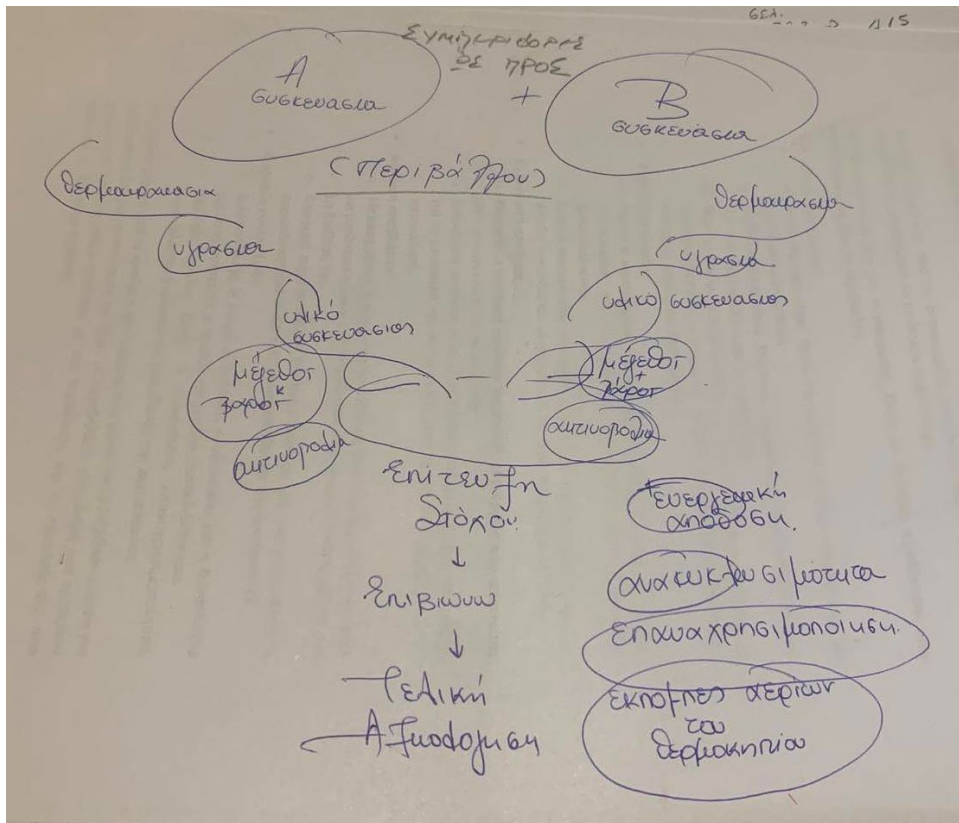 σελ.
Α
συσκευασια
Συμπεριφορας
ως προς
+
Β
συσκευασια
(Περιβάλλον)
θερμοκρασια
υγρασια
υλικό
συσκευασιας
μέγεθος
κ
βάρος
ακτινοβολια
θερμοκρασια
υγρασιά
υλικό συσκευασιας
μέγεθος
+
βάρος
ακτινοβολια
Επίτευξη
Στόχου
↓
Επιβιωνω
↓
Τελική
Αξιολόγηση
ενεργειακή
απόδοση.
ανακυκλωσιμότητα
επαναχρησιμοποίηση.
εκπομπες αεριων
του
θερμοκηπιου